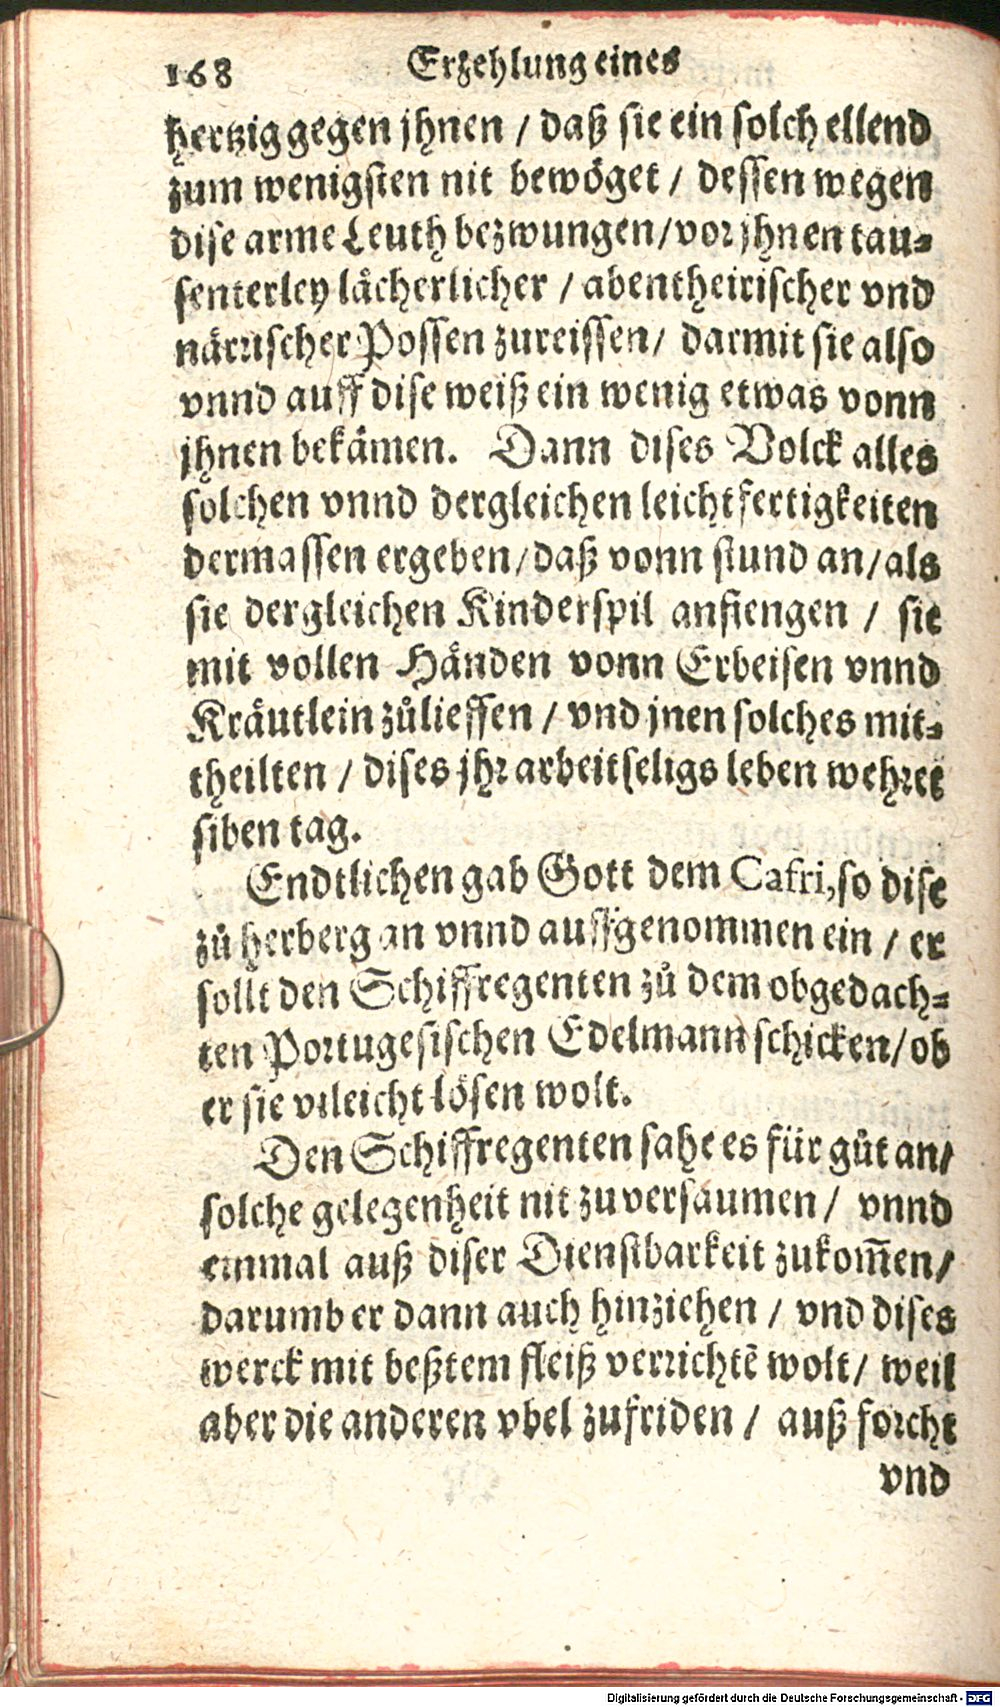 168 Erzehlung eines
hertzig gegen jhnen / daß sie ein solch ellend
zum wenigsten nit bewöget / dessen wegen
dise arme Leuth bezwungen/vor jhnen tau⸗
senterley lächerlicher / abentheirischer vnd
närrischer Possen zureissen/ darmit sie also
vnnd auff dise weiß ein wenig etwas vonn
jhnen bekämen. Dann dises Volck alles
solchen vnnd dergleichen leichtfertigkeiten
dermassen ergeben/daß vonn stund an/als
sie dergleichen Kinderspil anfiengen / sie
mit vollen Händen vonn Erbeisen vnnd
Kräutlein zůlieffen / vnd jnen solches mit⸗
theilten / dises jhr arbeitseligs leben wehret
siben tag.
Endtlichen gab Gott dem Cafri, so dise
zů herberg an vnnd auffgenommen ein / er
sollt den Schiffregenten zů dem obgedach⸗
ten Portugesischen Edelmann schicken/ob
er sie vileicht lösen wolt.
Den Schiffregenten sahe es für gůt an/
solche gelegenheit nit zuversaumen / vnnd
einmal auß diser Dienstbarkeit zukom̅en/
darumb er dann auch hinziehen / vnd dises
werck mit beßtem fleiß verrichtē wolt/ weil
aber die anderen vbel zufriden / auß forcht
vnd
Digitalisierung gefördert durch die Deutsche Forschungsgemeinschaft - DFG